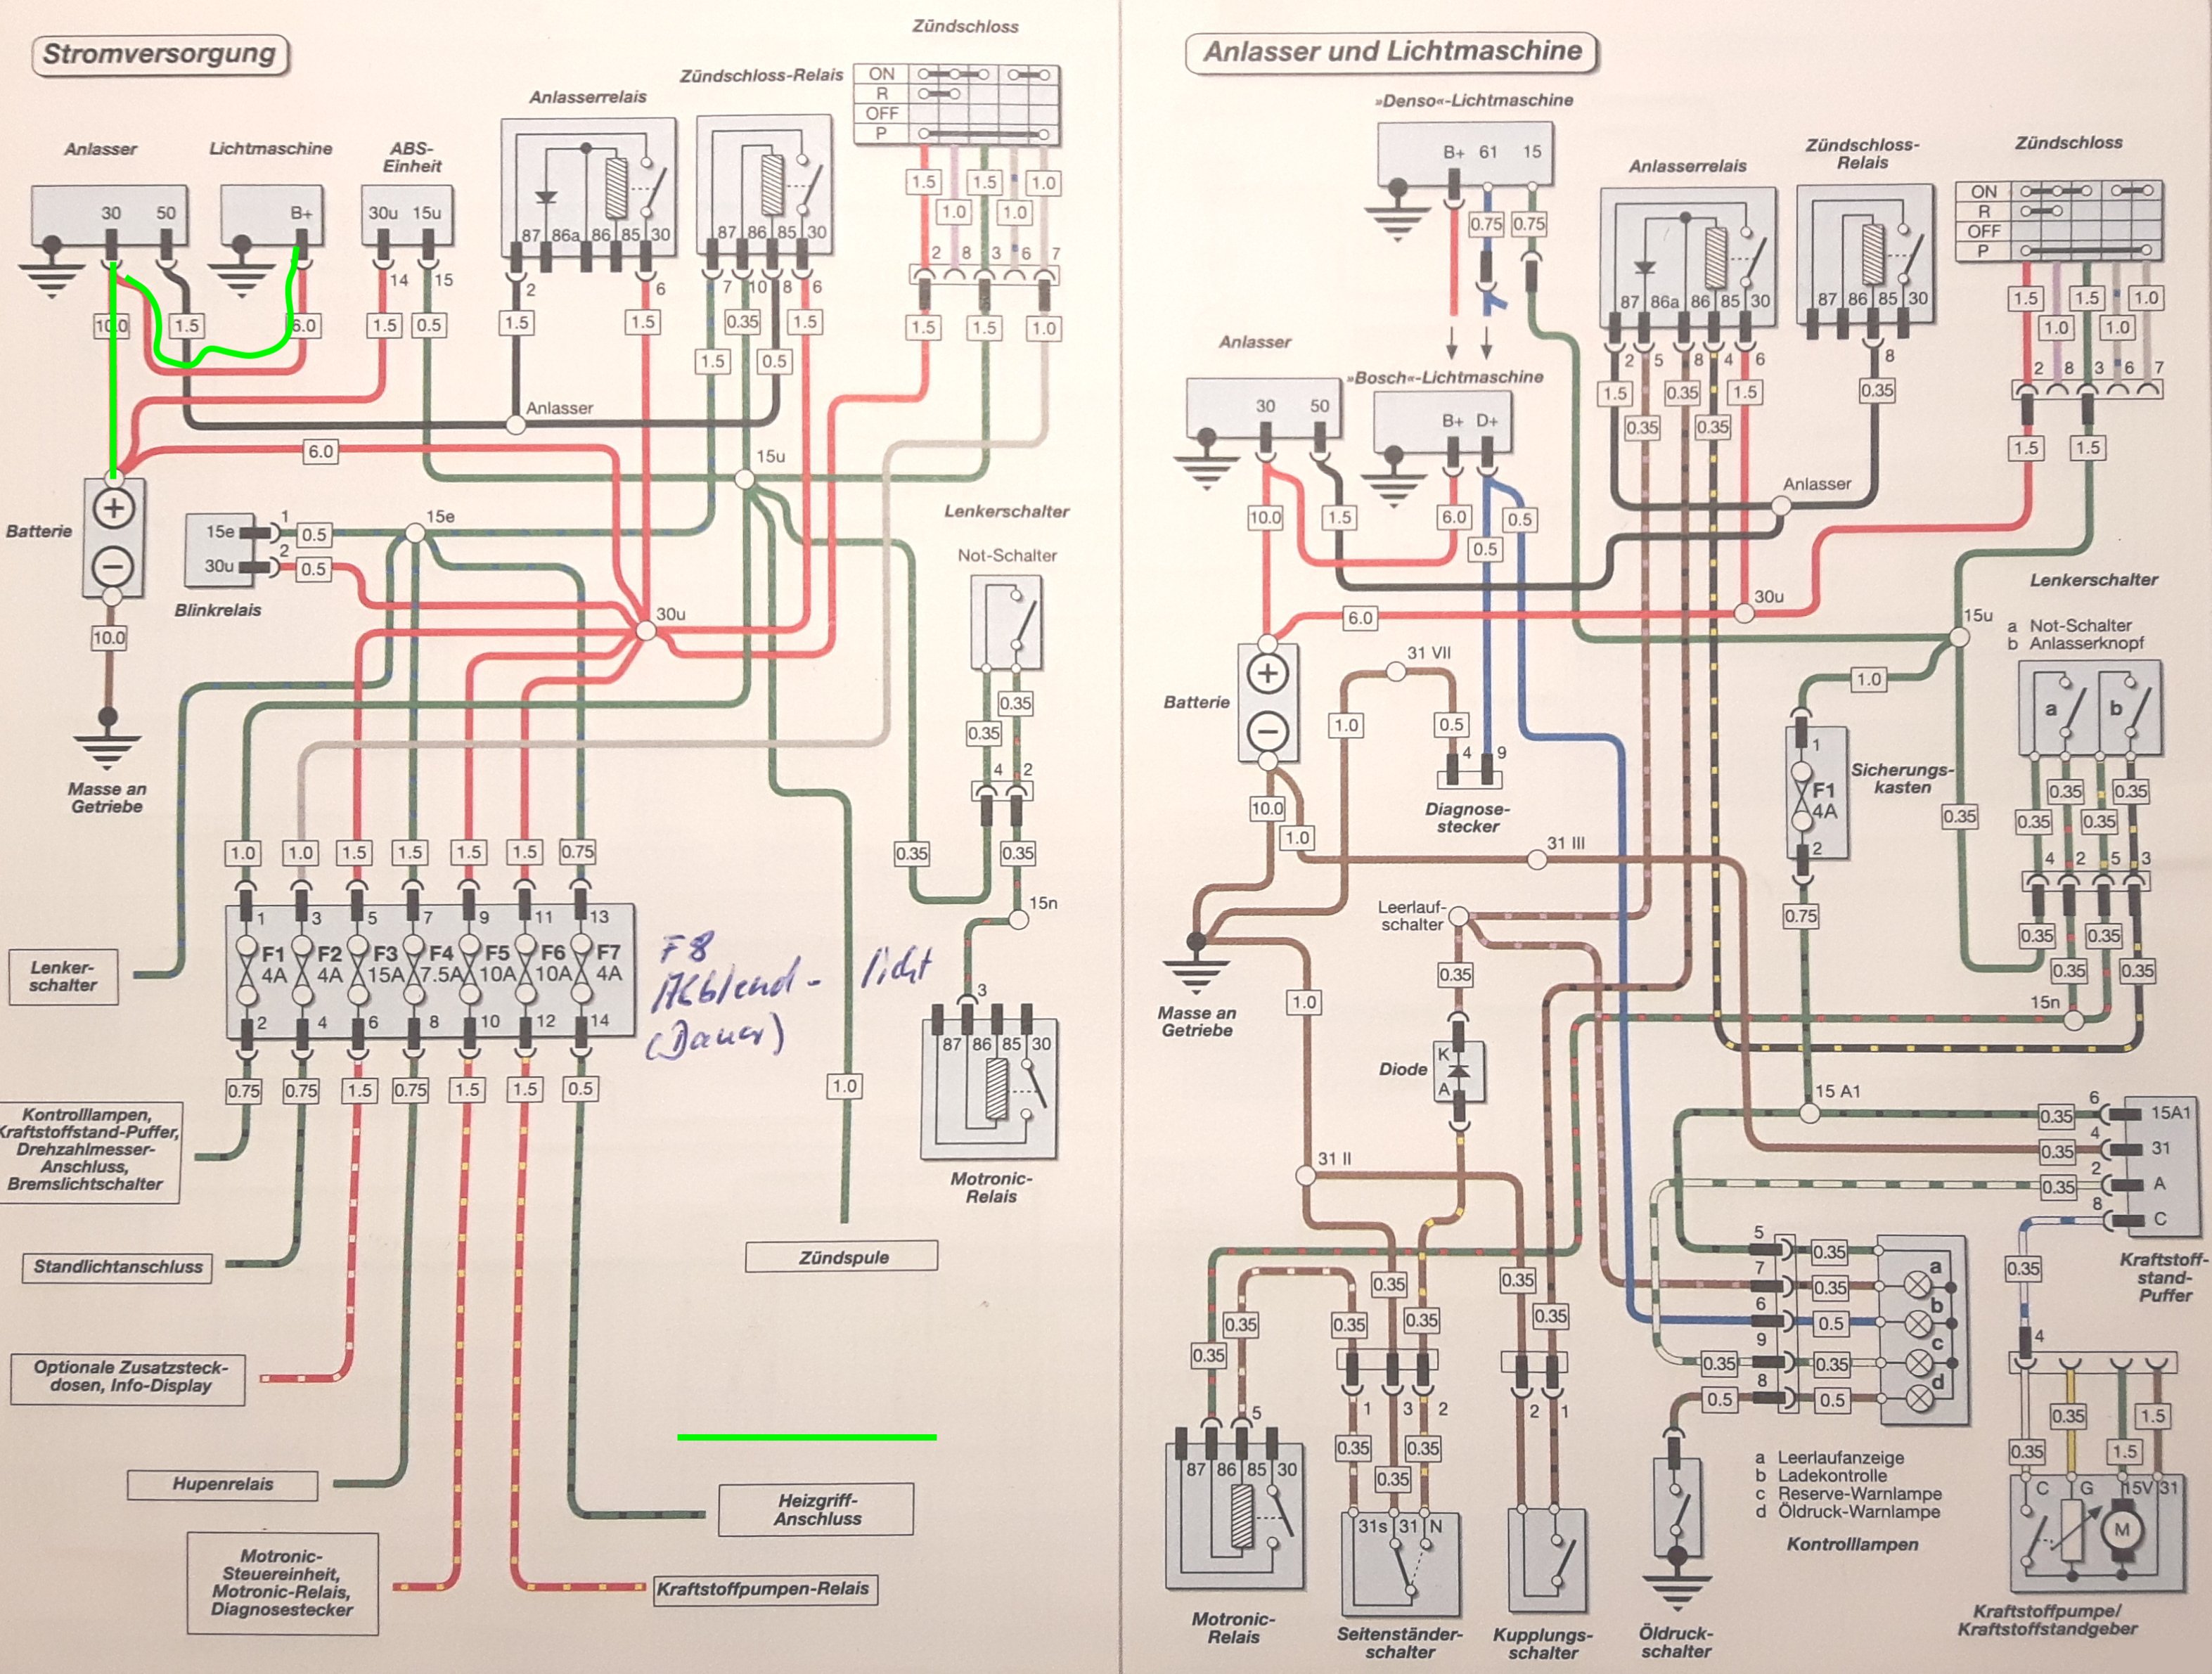 Stromversorgung
Zündschloss
Zündschloss-Relais
Anlasserrelais
ON
R
OFF
P
Anlasser
Lichtmaschine
ABS-
Einheit
30 50
B+
30u 15u
87 86a 86 85 30
87 86 85 30
1.5 1.5 1.0
1.0 1.0
2 8 3 6 7
14 15
2 6
7 10 8 6
10.0 1.5 6.0 1.5 0.5 1.5 1.5 0.35 1.5 1.5 1.5 1.0
1.5 0.5
Anlasser
6.0
15u
Batterie
+
−
15e 1 0.5
30u 2 0.5
15e
Blinkrelais
Lenkerschalter
Not-Schalter
30u
10.0
0.35
0.35
4 2
Masse an
Getriebe
1.0 1.0 1.5 1.5 1.5 1.5 0.75
0.35 0.35
15n
1 3 5 7 9 11 13
F1 F2 F3 F4 F5 F6 F7
4A 4A 15A 7.5A 10A 10A 4A
2 4 6 8 10 12 14
F8
Abblend- licht
(Dauer)
Lenker-
schalter
3
87 86 85 30
Motronic-
Relais
0.75 0.75 1.5 0.75 1.5 1.5 0.5
1.0
Kontrolllampen,
Kraftstoffstand-Puffer,
Drehzahlmesser-
Anschluss,
Bremslichtschalter
Standlichtanschluss
Zündspule
Optionale Zusatzsteck-
dosen, Info-Display
Hupenrelais
Heizgriff-
Anschluss
Motronic-
Steuereinheit,
Motronic-Relais,
Diagnosestecker
Kraftstoffpumpen-Relais
Anlasser und Lichtmaschine
»Denso«-Lichtmaschine
B+ 61 15
0.75 0.75
Anlasserrelais
Zündschloss-
Relais
Zündschloss
ON
R
OFF
P
87 86a 86 85 30
87 86 85 30
1.5 1.5 1.0
1.0 1.0
2 8 3 6 7
2 5 8 4 6
8
Anlasser
30 50
»Bosch«-Lichtmaschine
B+ D+
1.5 0.35 1.5
0.35 0.35
0.35
1.5 1.5
10.0 1.5 6.0 0.5
0.5
Anlasser
6.0
30u
15u
Lenkerschalter
a Not-Schalter
b Anlasserknopf
a b
Batterie
+
−
31 VII
1.0
0.5
4 9
Diagnose-
stecker
1.0
1
F1
4A
2
Sicherungs-
kasten
0.35
0.35 0.35
0.35 0.35
4 2 5 3
10.0
1.0
31 III
Leerlauf-
schalter
0.75
0.35
0.35 0.35
0.35 0.35
15n
Masse an
Getriebe
1.0
Diode
K
A
15 A1
0.35 6 15A1
0.35 4 31
0.35 2 A
8 C
Kraftstoff-
stand-
Puffer
31 II
0.35
0.35 0.35 0.35 0.35 0.35
0.35
0.35
5 0.35 a
7 0.35
6 0.5 b
9 0.35 0.35 c
8 0.5 0.5 d
4
0.35 1.5
0.35 1.5
5
1 3 2
2 1
0.35 0.35
0.35
87 86 85 30
31s 31 N
C G 15V 31
M
a Leerlaufanzeige
b Ladekontrolle
c Reserve-Warnlampe
d Öldruck-Warnlampe
Kontrolllampen
Motronic-
Relais
Seitenständer-
schalter
Kupplungs-
schalter
Öldruck-
schalter
Kraftstoffpumpe/
Kraftstoffstandgeber